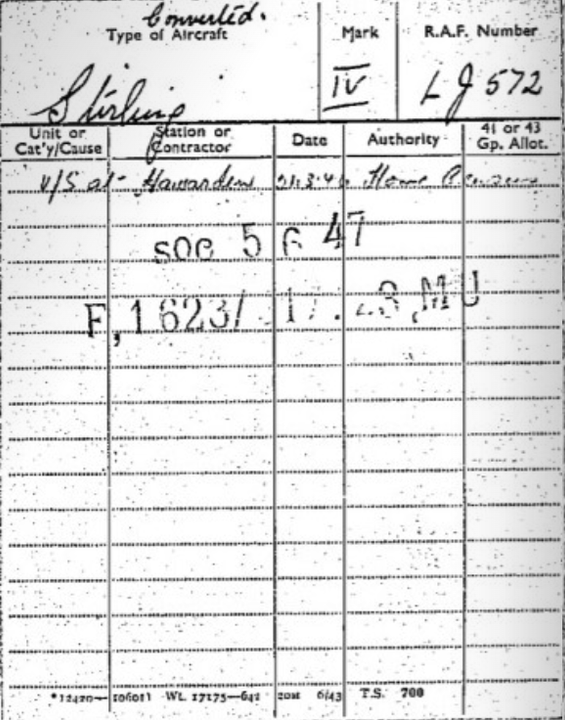 Converted.
Type of Aircraft
Mark
R.A.F. Number
Stirling
IV
LJ 572
Unit or Cat'y/Cause
Station or Contractor
Date
Authority
41 or 43 Gp. Allot.
V/S at Hawarden 31.3.46 Home
SOC 5 6 47
F,1623/ 23,MU
*12420— 106011 Wt. 17175—641 20M 6/43 T.S. 700